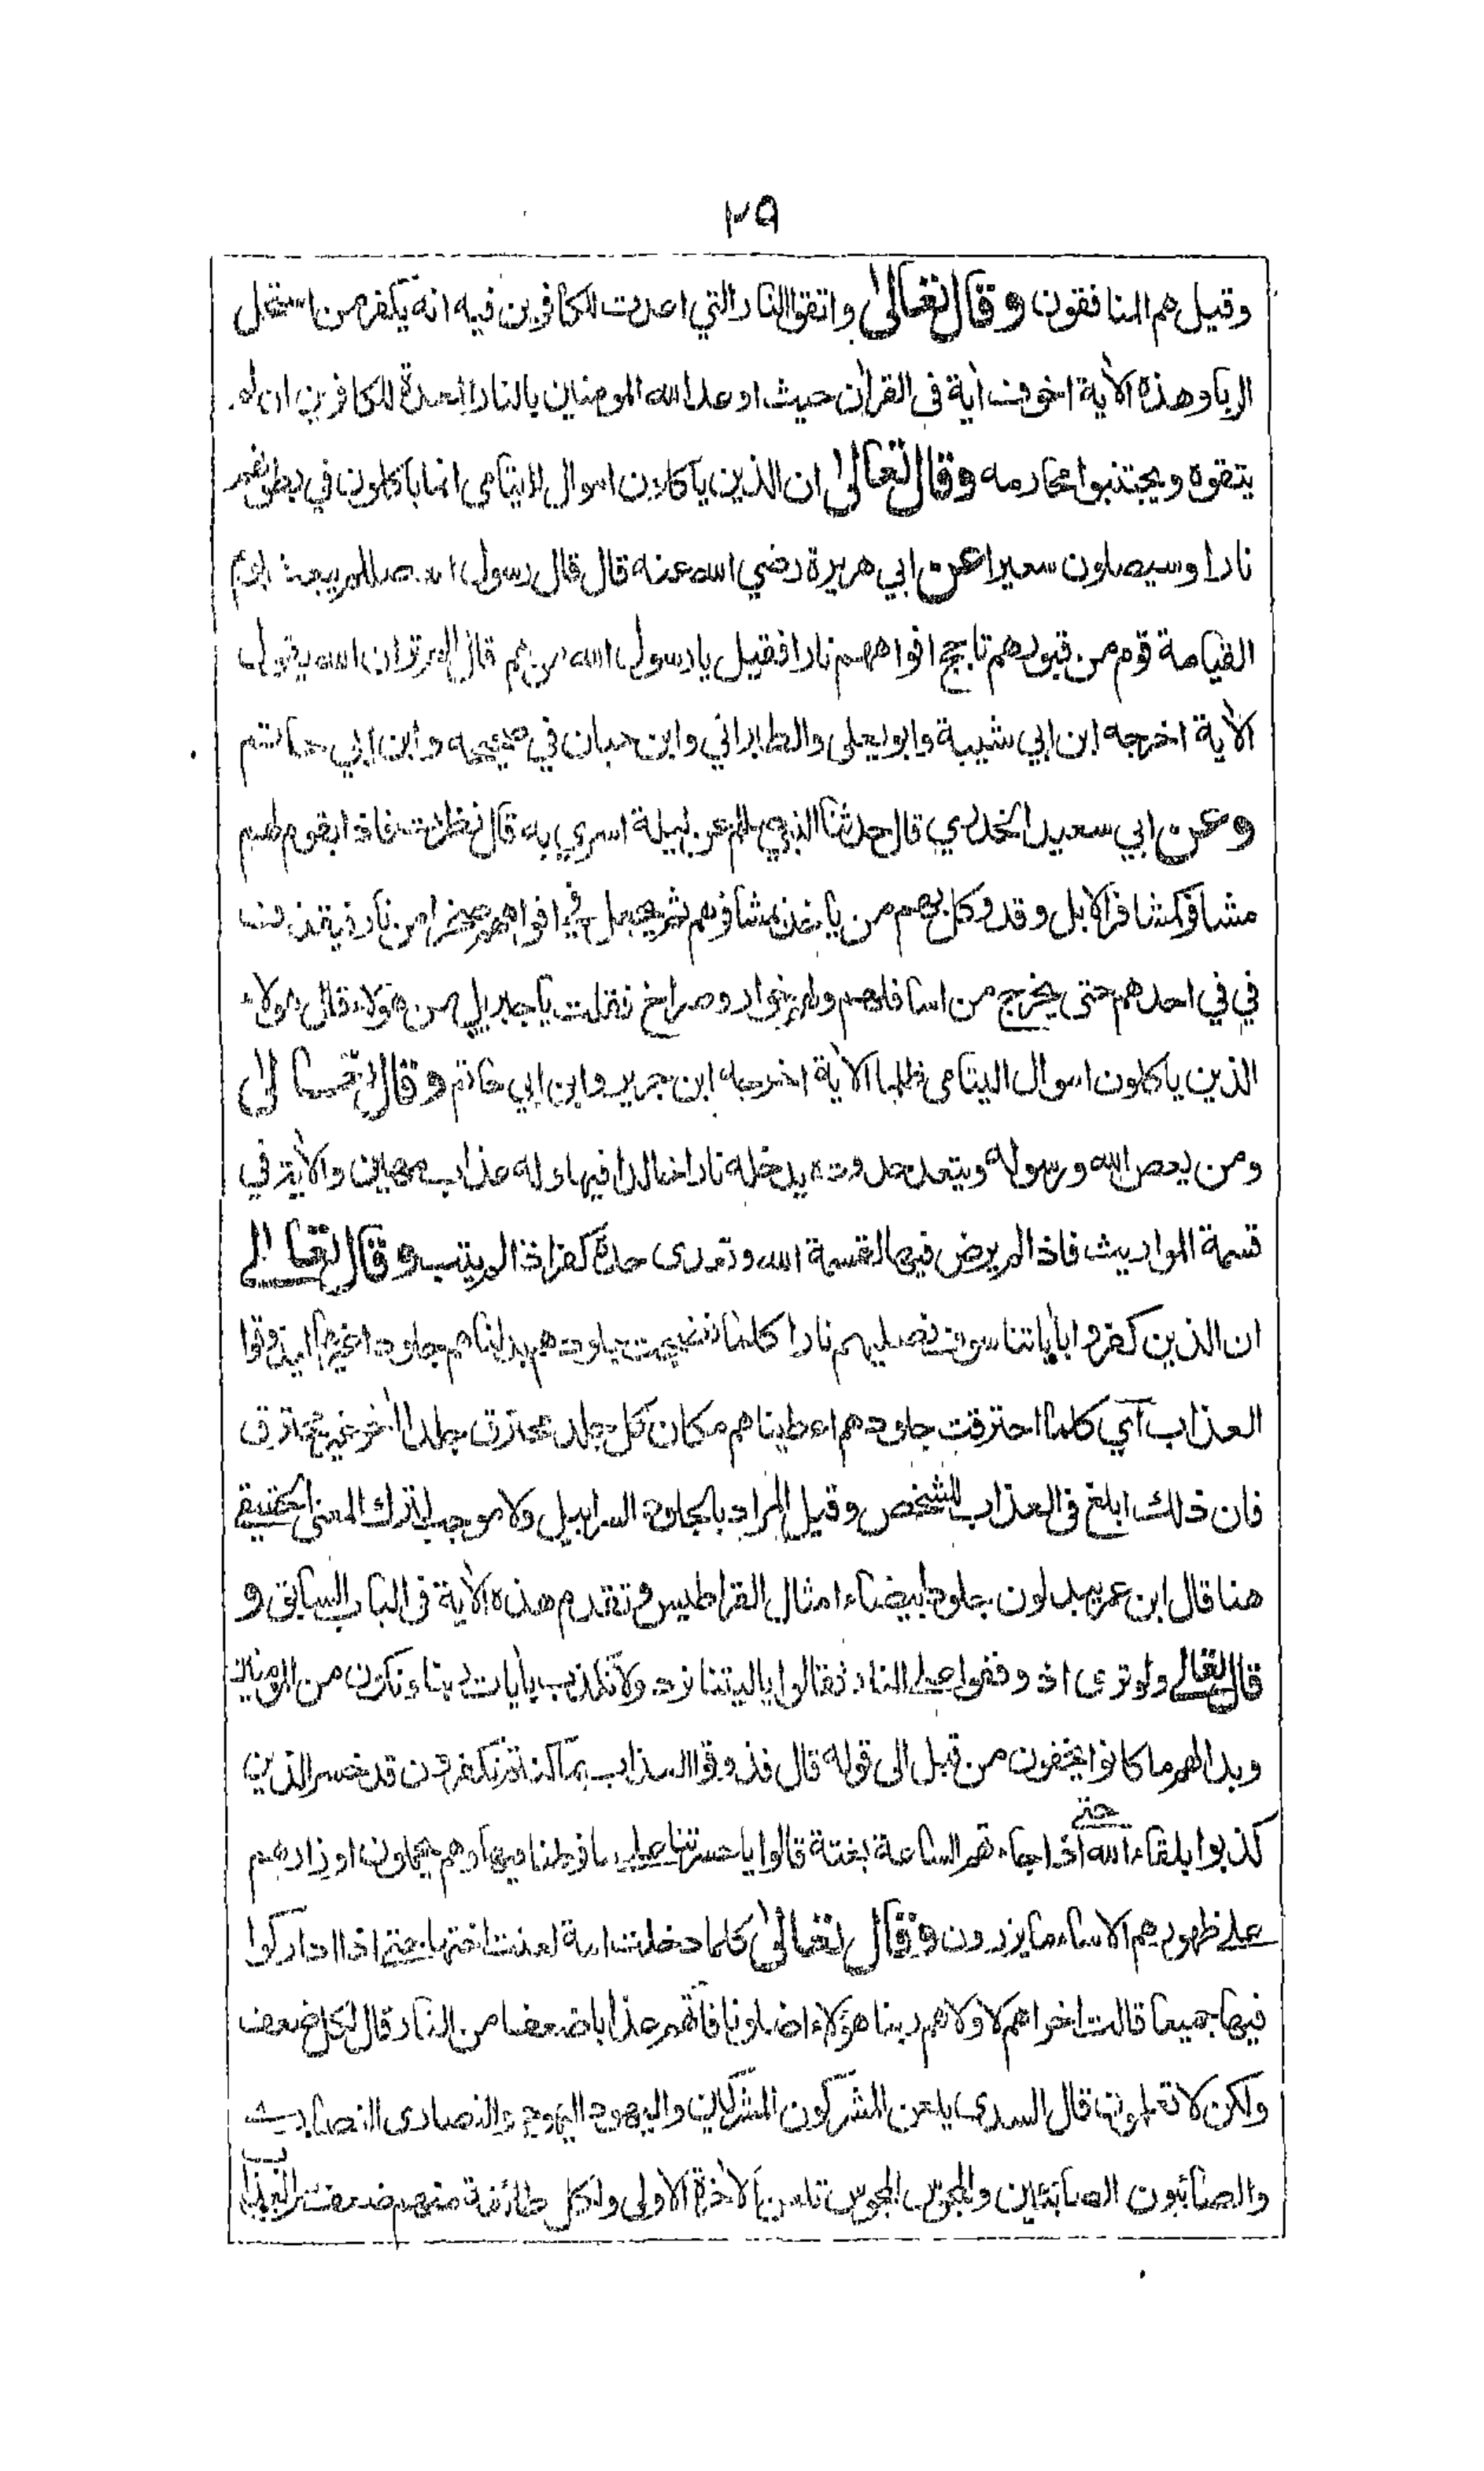 ٢٩
وقيل هم المنافقون وقال تعالى واتقوا النار التي اعدت للكافرين فيه انه يكفر من استحل
الربا وهذه الآية اخوف آية في القرآن حيث اوعد الله المومنين بالنار المعدة للكافرين ان لم
يتقوه ويجتنبوا محارمه وقال تعالى ان الذين ياكلون اموال اليتامى انما ياكلون في بطونهم
نارا وسيصلون سعيرا عن ابي هريرة رضي الله عنه قال قال رسول الله صللم يبعث يوم
القيامة قوم من قبورهم تاجج افواههم نارا فقيل يا رسول الله من هم قال الم تر ان الله يقول
الآية اخرجه ابن ابي شيبة وابو يعلى والطبراني وابن حبان في صحيحه وابن ابي حاتم
وعن ابي سعيد الخدري قال حدثنا النبي صللم عن ليلة اسري به قال نظرت فاذا بقوم لهم
مشافر كمشافر الابل وقد وكل بهم من ياخذ بمشافرهم ثم يجعل في افواههم صخرا من نار فيقذف
في في احدهم حتى يخرج من اسافلهم ولهم خوار وصراخ فقلت يا جبريل من هؤلاء قال هؤلاء
الذين ياكلون اموال اليتامى ظلما الآية اخرجه ابن جرير وابن ابي حاتم وقال تعالى
ومن يعص الله ورسوله ويتعد حدوده يدخله نارا خالدا فيها وله عذاب مهين والآية في
قسمة المواريث فاذا لم يرض فيها لقسمة الله وتعدى حده كفر اذا لم يتب وقال تعالى
ان الذين كفروا بآياتنا سوف نصليهم نارا كلما نضجت جلودهم بدلناهم جلودا غيرها ليذوقوا
العذاب آي كلما احترقت جلودهم اعطيناهم مكان كل جلد محترق جلدا آخر غير محترق
فان ذلك ابلغ في العذاب للشخص وقيل المراد بالجلود السرابيل ولا موجب لترك المعنى الحقيقي
هنا قال ابن عمر يبدلون جلودا بيضاء امثال القراطيس وتقدم هذه الآية في الباب السابق و
قال تعالى ولو ترى اذ وقفوا على النار فقالوا يا ليتنا نرد ولا نكذب بآيات ربنا ونكون من المومنين
وبدا لهم ما كانوا يخفون من قبل الى قوله قال فذوقوا العذاب بما كنتم تكفرون قد خسر الذين
كذبوا بلقاء الله حتى اذا جاءتهم الساعة بغتة قالوا يا حسرتنا على ما فرطنا فيها وهم يحملون اوزارهم
على ظهورهم الا ساء ما يزرون وقال تعالى كلما دخلت امة لعنت اختها حتى اذا اداركوا
فيها جميعا قالت اخراهم لاولاهم ربنا هؤلاء اضلونا فآتهم عذابا ضعفا من النار قال لكل ضعف
ولكن لا تعلمون قال السدي يلعن المشركون المشركين واليهود اليهود والنصارى النصارى
والصائبون الصابئين والمجوس المجوس تلعن الآخرة الاولى ولكل طائفة منهم ضعف من العذاب